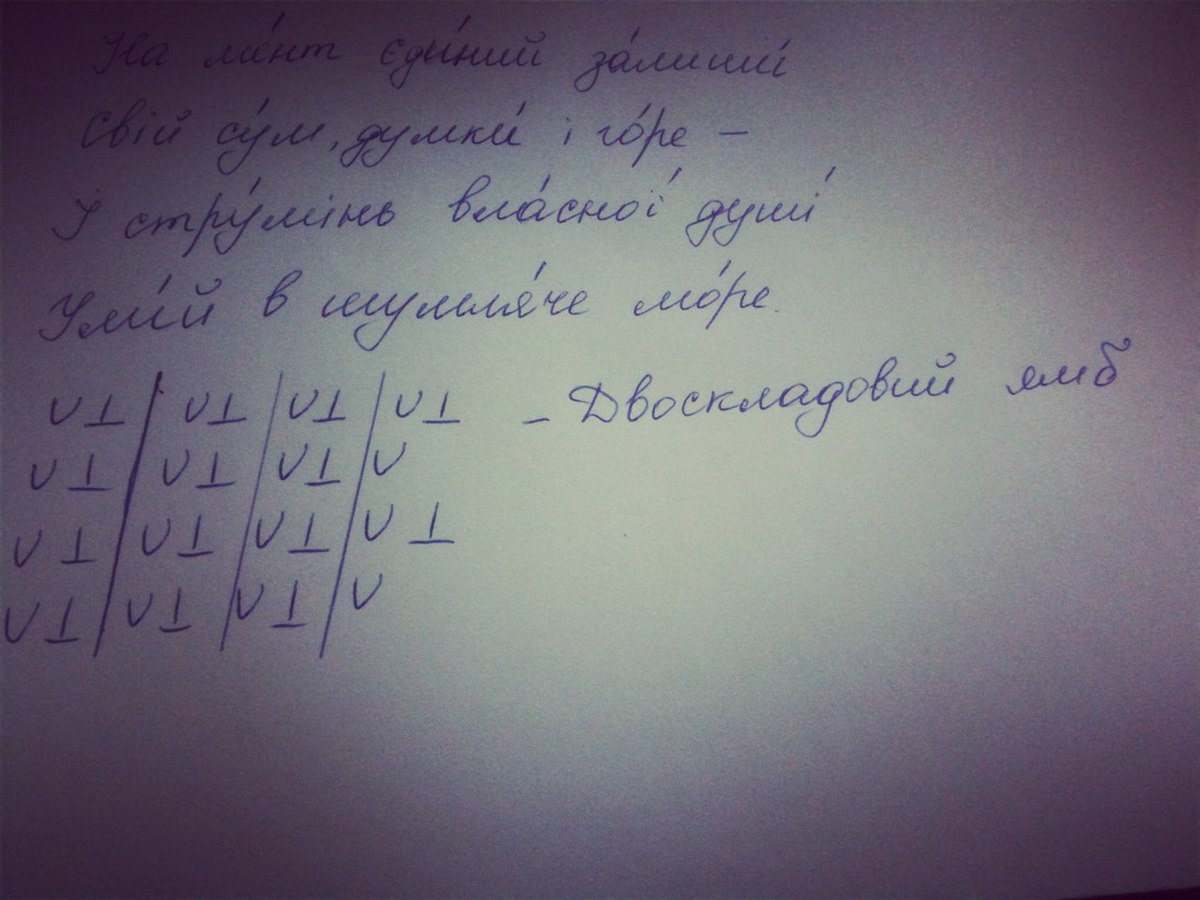 На ме́нт єди́ний за́лиши́
Свій су́м, думки́ і го́ре –
І стру́мінь вла́сної́ душі́
Умі́й в шумля́че мо́ре.
∪⊥/∪⊥/∪⊥/∪⊥ – Двоскладовий ямб
∪⊥/∪⊥/∪⊥/∪
∪⊥/∪⊥/∪⊥/∪⊥
∪⊥/∪⊥/∪⊥/∪